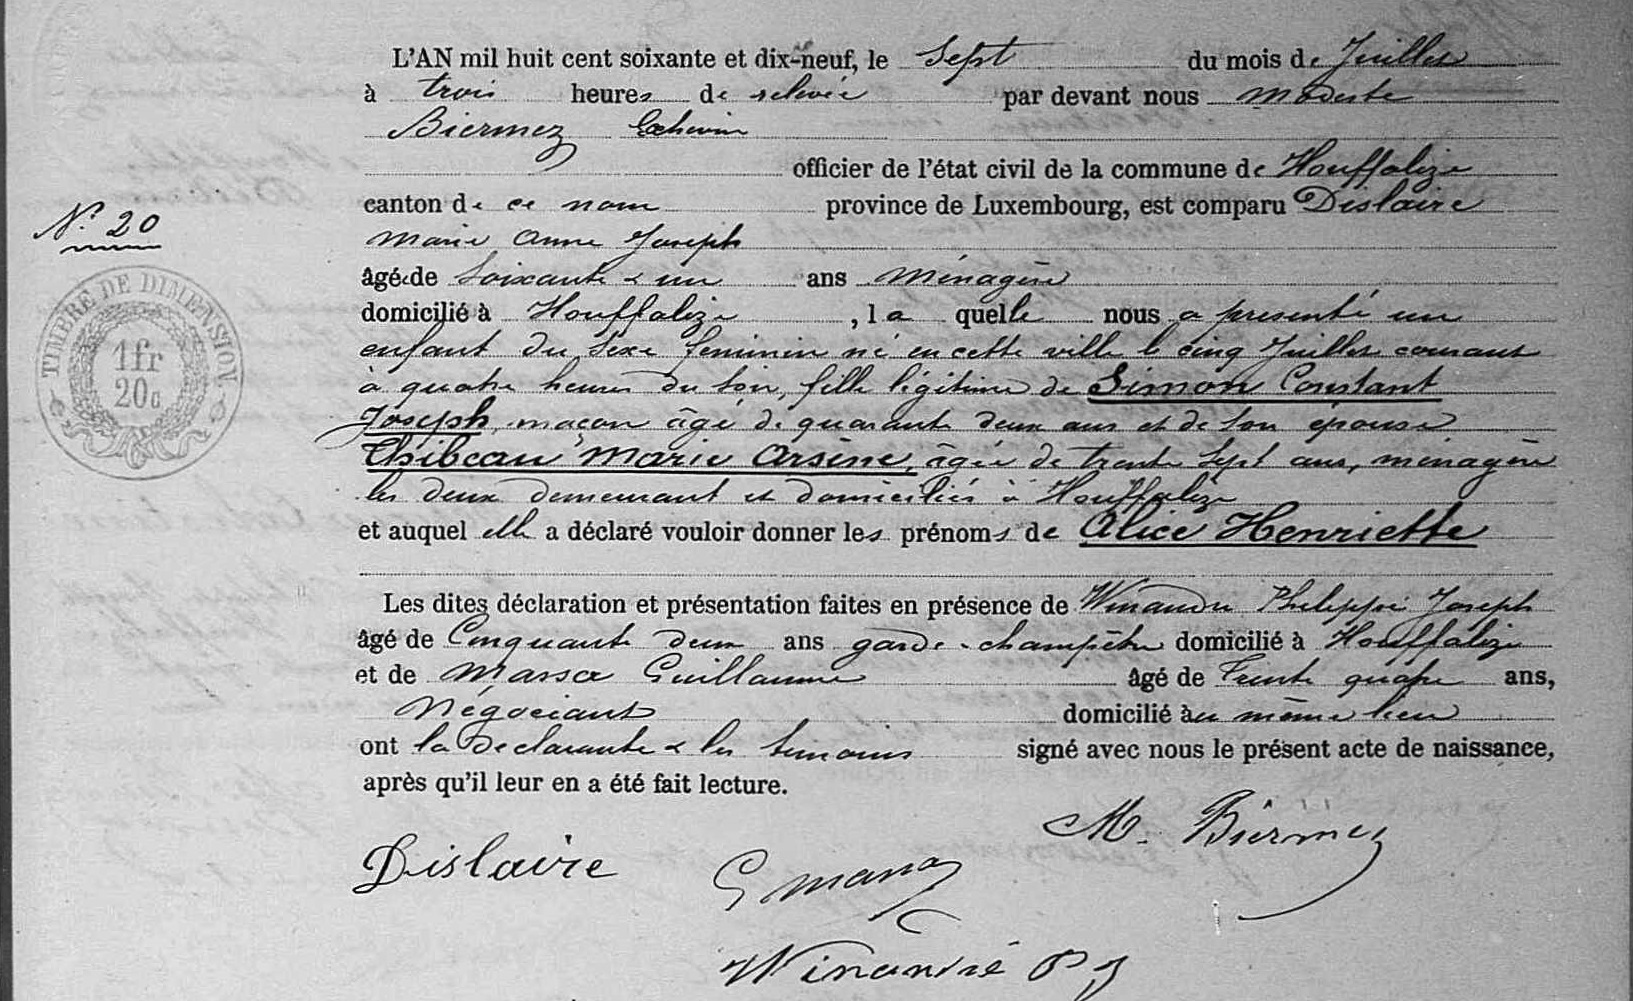 L'AN mil huit cent soixante et dix-neuf, le Sept du mois de Juillet
à trois heures de relevée par devant nous Modeste
Biermez Echevin
officier de l'état civil de la commune de Houffalize
N° 20
canton de ce nom province de Luxembourg, est comparu Dislaire
Marie Anne Joseph
âgé de soixante & un ans Ménagère
domicilié à Houffalize, la quelle nous a présenté un
enfant du sexe feminin né en cette ville le cinq Juillet courant
à quatre heures du soir, fille légitime de Simon Constant
Joseph, maçon âgé de quarante deux ans et de son épouse
Thibeau Marie Arsène, âgée de trente sept ans, ménagère
les deux demeurant et domiciliés à Houffalize
et auquel elle a déclaré vouloir donner les prénoms de Alice Henriette
TIMBRE DE DIMENSION.
1fr
20c
Les dites déclaration et présentation faites en présence de Winandu Philippe Joseph
âgé de Cinquante deux ans garde-champêtre domicilié à Houffalize
et de Massa Guillaume âgé de Trente quatre ans,
Négociant domicilié au même lieu
ont la déclarante & les témoins signé avec nous le présent acte de naissance,
après qu'il leur en a été fait lecture.
M. Biermez
Dislaire
G Massa
Winandié P J